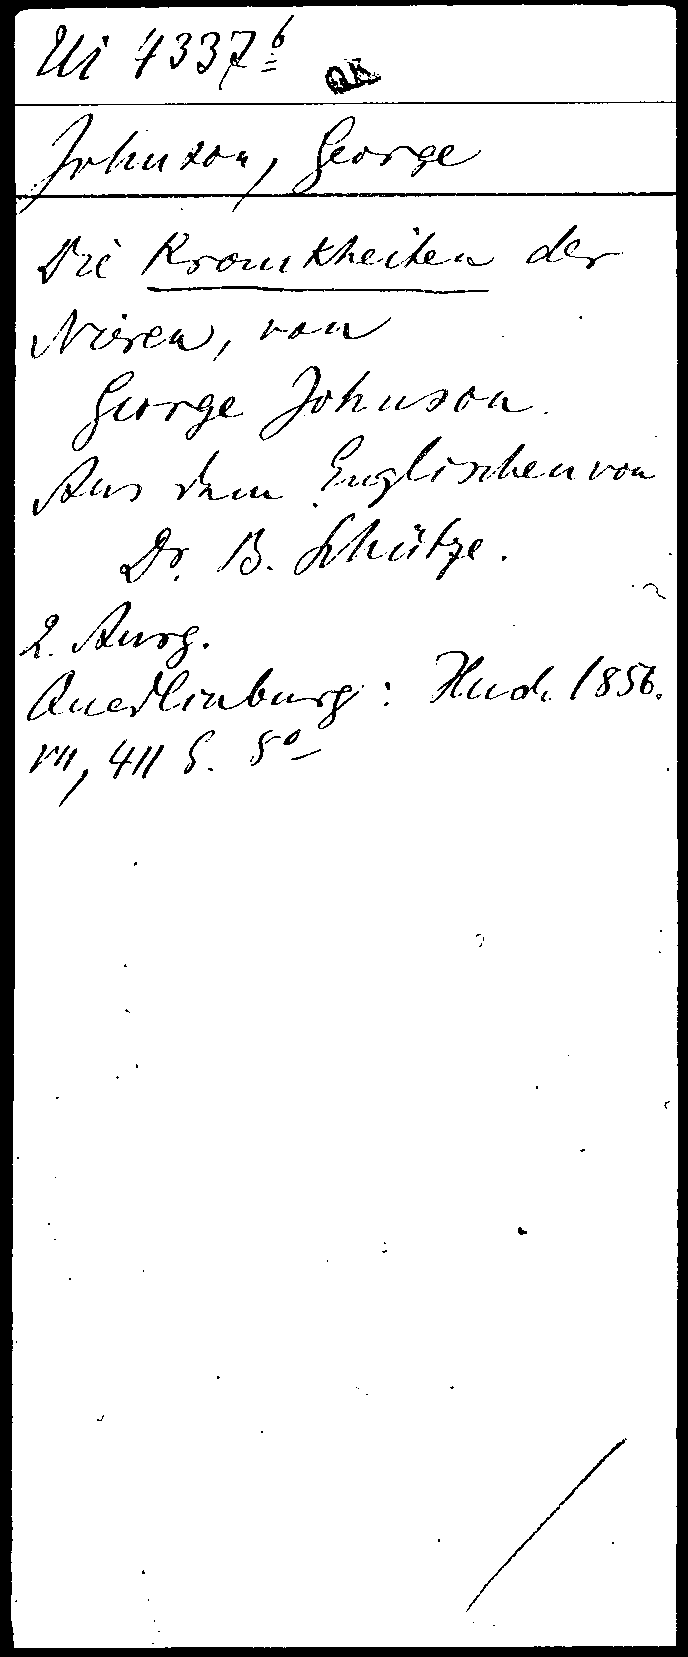 Ui 4337 b
QK
Johnson, George
Die Krankheiten der
Nieren, von
George Johnson.
Aus dem Englischen von
Dr. B. Schütze.
2. Ausg.
Quedlinburg: Huch 1856.
VII, 411 S. 8°